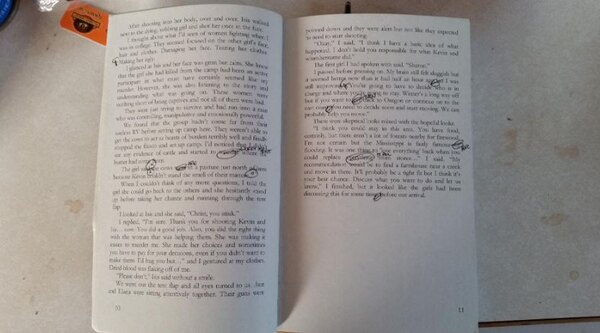 After shooting into her body, over and over. Isis walked
next to the dying, sobbing girl and shot her once in the face.
I thought about what I'd seen of women fighting when I
was in college. They seemed focused on the other girl's face,
hair and clothes. Damaging her face. Tearing her clothes.
Making her ugly.
I glanced at Isis and her face was grim but calm. She knew
that the girl she had killed from the camp had been an active
participant in what must have certainly seemed like my
murder. However, she was also listening to the story and
understanding what was going on. These women were
nothing short of being captives and not all of them were bad.
They were just trying to survive and had run into a man
who was controlling, manipulative and emotionally powerful.
We found that the group hadn't come far from their
useless RV before setting up camp here. They weren't able to
get the cows to act as beasts of burden terribly well and finally
stopped the fiasco and set up camp. I'd noticed that I didn't
see any evidence of cattle and started to where the
butter had
The girl said the cows were in a pasture just north
because Kevin couldn't stand the smell of their manure.
When I couldn't think of any more questions, I told the
girl she could go back to the others and she hesitantly stood
up before taking her chance and running through the tent
flap.
I looked at Isis and she said, "Christ, you stink."
I replied, "I'm sure. Thank you for shooting Kevin and
his... cow. You did a good job. Also, you did the right thing
with the woman that was helping them. She was making it
easier to murder me. She made her choices and sometimes
you have to pay for your decisions, even if you didn't want to
make them. I'd hug you but..." and I gestured at my clothes.
Dried blood was flaking off of me.
"Please don't," Isis said without a smile.
We went out the tent flap and all eyes turned to us. Jane
and Elara were sitting attentively together. Their guns were
10
pointed down and they were alert but not like they expected
to need to start shooting.
"Okay," I said, "I think I have a basic idea of what
happened. I don't hold you responsible for what Kevin and
The first girl I had spoken with said, "Sharon."
I paused before pressing on. My brain still felt sluggish but
it seemed better now than it had half an hour earlier. I was
still improvising. "You're going to have to decide who is in
charge and where you're going to stay. Winter's a long way off
but if you want to back to Oregon or continue on to the
east you need to decide soon and start moving. We can
probably help you more."
There were skeptical looks mixed with the hopeful looks.
"I think you could stay in this area. You have food,
certainly, but there aren't a lot of forests nearby for firewood.
I'm not certain but the Mississippi is fairly famous
flooding. It was one thing to lose everything back when you
could replace from stores..." I said. "My
recommendation would be to find a farmhouse near a creek
and move in there. It'll probably be a tight fit but I think it's
your best chance. Discuss what you want to do and let us
know," I finished, but it looked like the girls had been
discussing this for some time before our arrival.
11